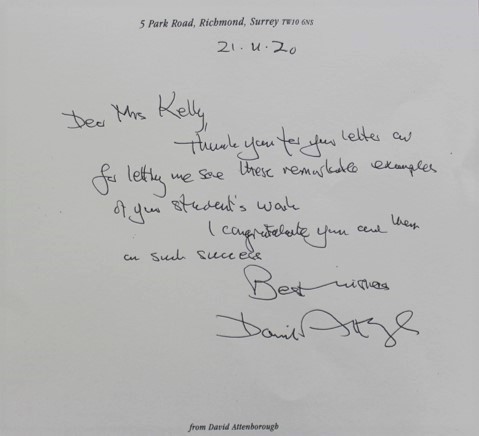 5 Park Road, Richmond, Surrey TW10 6NS
21.4.20
Dear Mrs Kelly,
Thank you for your letter and
for letting me see these remarkable examples
of your student's work
I congratulate you and them
on such success
Best wishes
David Attenborough
from David Attenborough